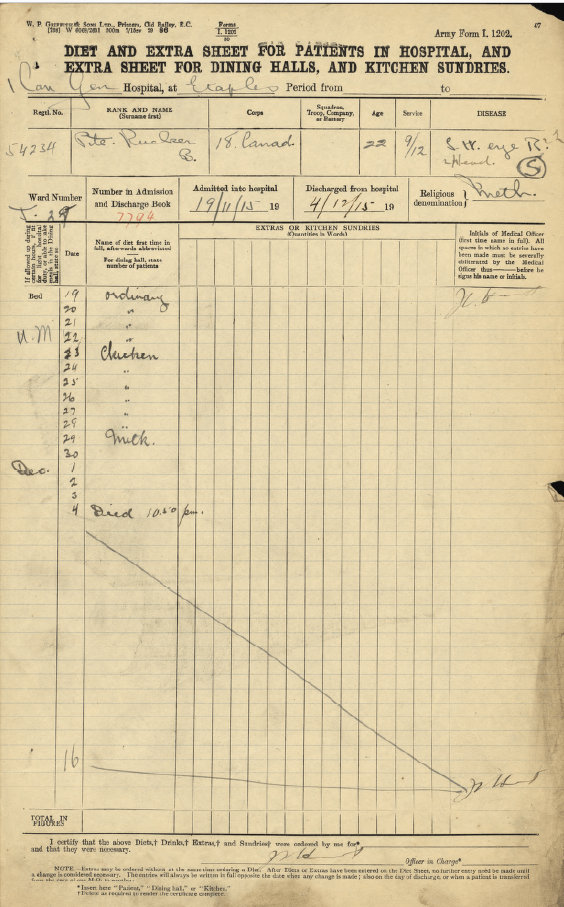 W. P. Griffith & Sons Ltd., Printers, Old Bailey, E.C.
Forms
I. 1202
Army Form I. 1202.
DIET AND EXTRA SHEET FOR PATIENTS IN HOSPITAL, AND
EXTRA SHEET FOR DINING HALLS, AND KITCHEN SUNDRIES.
1 Can Gen Hospital, at Etaples Period from to
Regtl. No. RANK AND NAME (Surname first) Corps Squadron, Troop, Company, or Battery Age Service DISEASE
54234 Pte. 18. Canad. 22 9/12 S. W. eye R.
B. Head. 5
Ward Number Number in Admission and Discharge Book Admitted into hospital Discharged from hospital Religious denomination
7794 19/11/15 19 4/12/15 19 Meth.
EXTRAS OR KITCHEN SUNDRIES
(Quantities in Words)
Date Name of diet first time in full, afterwards abbreviated
For dining hall, state number of patients
Initials of Medical Officer (first time name in full). All spaces in which no entries have been made must be severally obliterated by the Medical Officer thus —— before he signs his name or initials.
Bed 19 ordinary
20 "
21 "
22 "
23 Chicken
24 "
25 "
26 "
27 "
28 "
29 Milk.
30
Dec. 1
2
3
4 Died 10.50 pm.
16
TOTAL IN FIGURES
I certify that the above Diets,† Drinks,† Extras,† and Sundries† were ordered by me for*
and that they were necessary.
Officer in Charge*
NOTE.—Extras may be ordered without at the same time ordering a Diet. After Diets or Extras have been entered on the Diet Sheet, no further entry need be made until
a change is considered necessary. The entries will always be written in full opposite the date when any change is made; also on the day of discharge, or when a patient is transferred
*Insert here "Patient," "Dining hall," or "Kitchen."
†Delete as required to render the certificate complete.